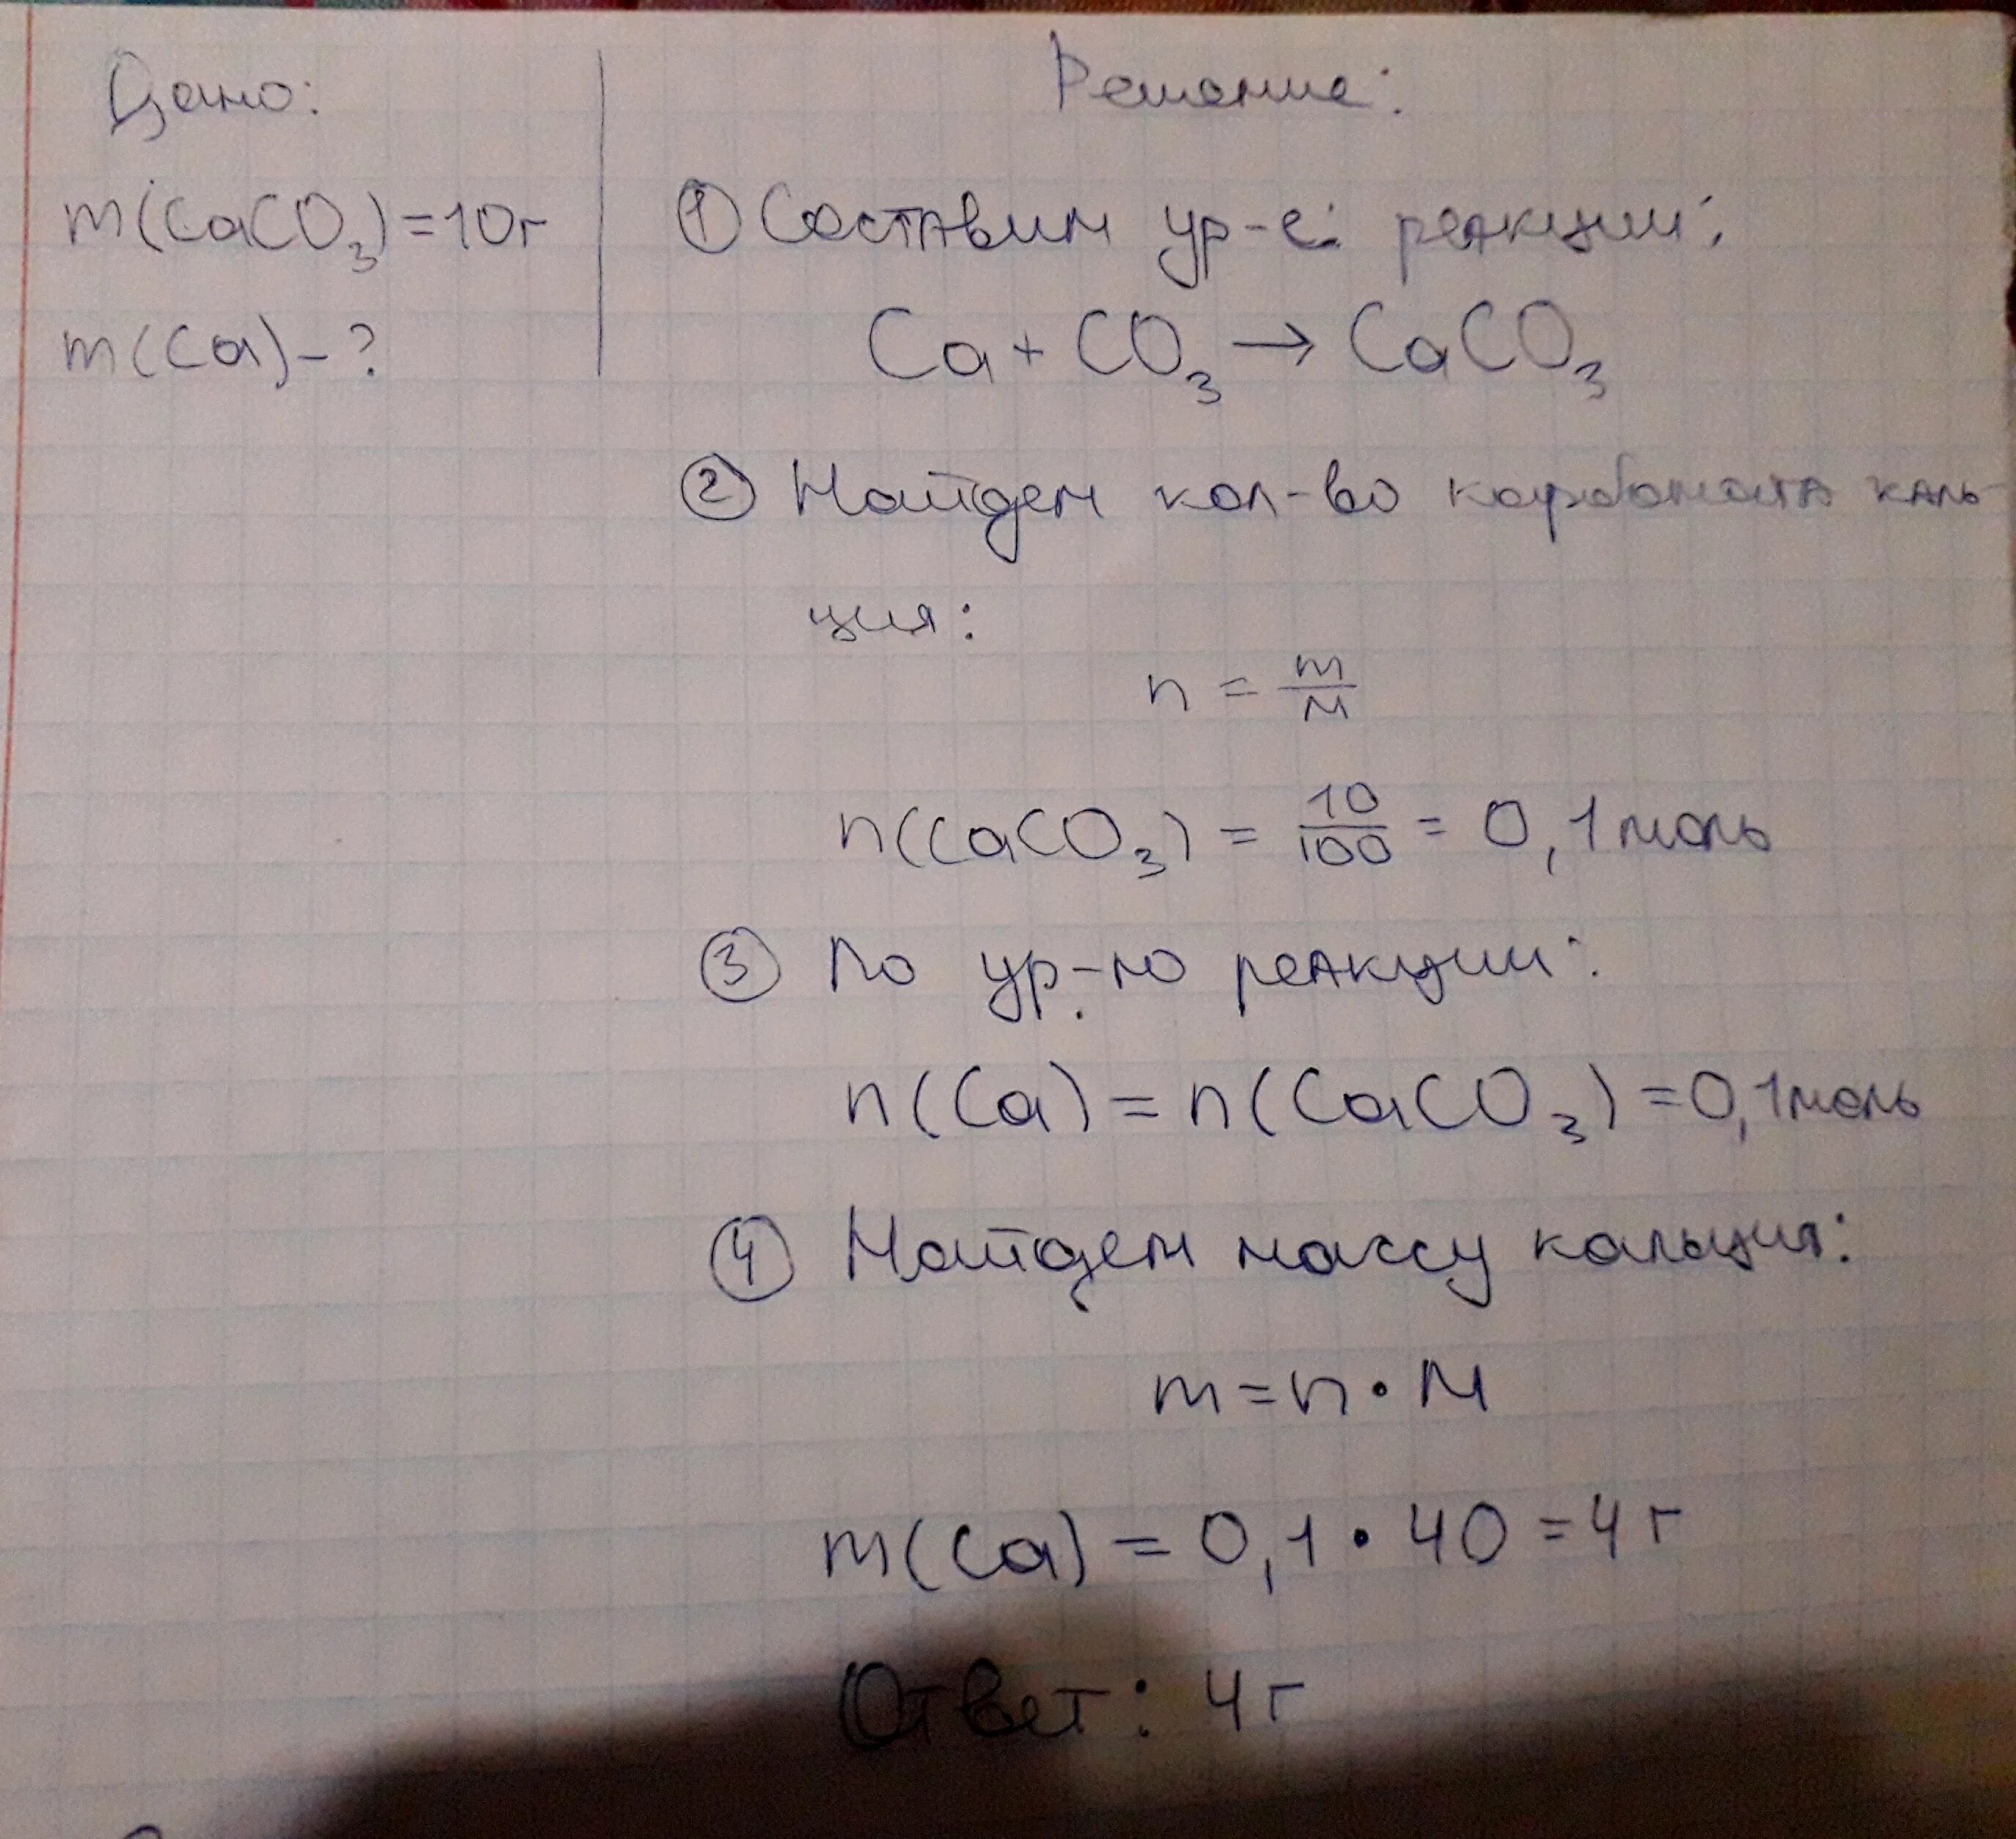 Дано:
Решение:
m(CaCO₃)=10г
m(Ca)-?
① Составим ур-е: реакции:
Ca + CO₃ → CaCO₃
② Найдем кол-во карбоната каль-
ция:
n = m/M
n(CaCO₃) = 10/100 = 0,1моль
③ По ур-ю реакции:
n(Ca) = n(CaCO₃) = 0,1моль
④ Найдем массу кальция:
m = n · M
m(Ca) = 0,1 · 40 = 4 г
Ответ: 4 г